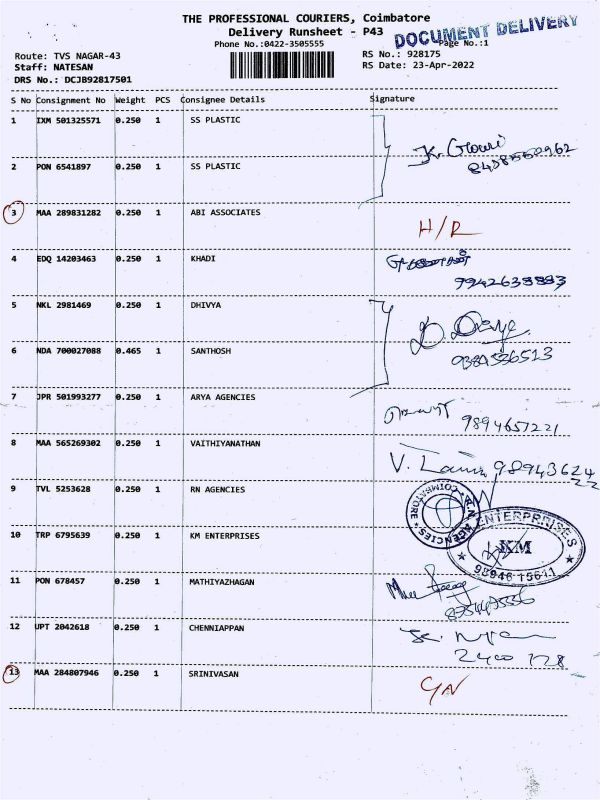 THE PROFESSIONAL COURIERS, Coimbatore
Delivery Runsheet - P43
DOCUMENT DELIVERY
Phone No.:0422-3505555
Page No.:1
Route: TVS NAGAR-43
RS No.: 928175
Staff: NATESAN
RS Date: 23-Apr-2022
DRS No.: DCJB92817501
S No Consignment No Weight PCS Consignee Details Signature
1 IXM 501325571 0.250 1 SS PLASTIC
2 PON 6541897 0.250 1 SS PLASTIC
3 MAA 289831282 0.250 1 ABI ASSOCIATES H/R
4 EDQ 14203463 0.250 1 KHADI
5 NKL 2981469 0.250 1 DHIVYA
6 NDA 700027088 0.465 1 SANTHOSH
7 JPR 501993277 0.250 1 ARYA AGENCIES 9894657221
8 MAA 565269302 0.250 1 VAITHIYANATHAN V.
9 TVL 5253628 0.250 1 RN AGENCIES R.N. AGENCIES * COIMBATORE *
10 TRP 6795639 0.250 1 KM ENTERPRISES ENTERPRISES KM 98946 15611
11 PON 678457 0.250 1 MATHIYAZHAGAN
12 UPT 2042618 0.250 1 CHENNIAPPAN
13 MAA 284807946 0.250 1 SRINIVASAN